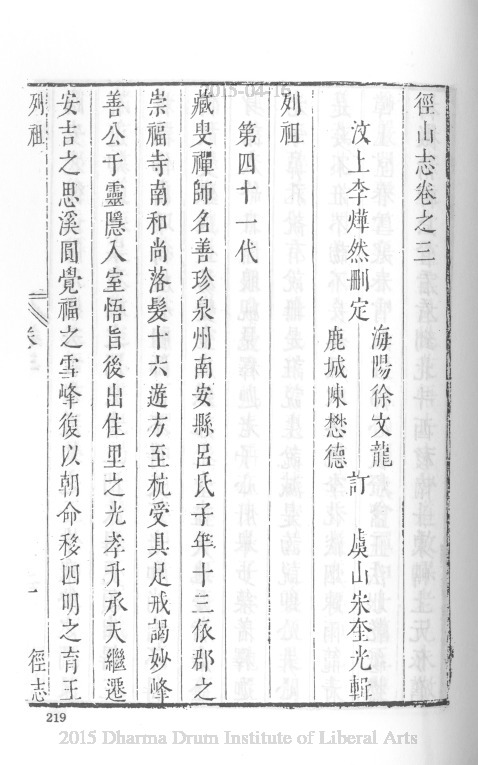 徑山志卷之三
汶上李燁然刪定
海陽徐文龍
鹿城陳懋德
訂
虞山宋奎光輯
列祖
第四十一代
藏叟禪師名善珍泉州南安縣呂氏子年十三依郡之
崇福寺南和尚落髮十六遊方至杭受具足戒謁妙峰
善公于靈隱入室悟旨後出住里之光孝升承天繼遷
安吉之思溪圓覺福之雪峰復以朝命移四明之育王
列祖
卷三
一
徑志
219
2015-04-16
2015 Dharma Drum Institute of Liberal Arts